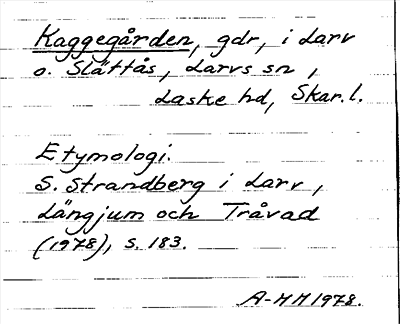 Kaggegården, gdr, i Larv
o. Slättås, Larvs sn,
Laske hd, Skar. l.
Etymologi.
S. Strandberg i Larv,
Längjum och Tråvad
(1978), s. 183.
A-MM 1978.